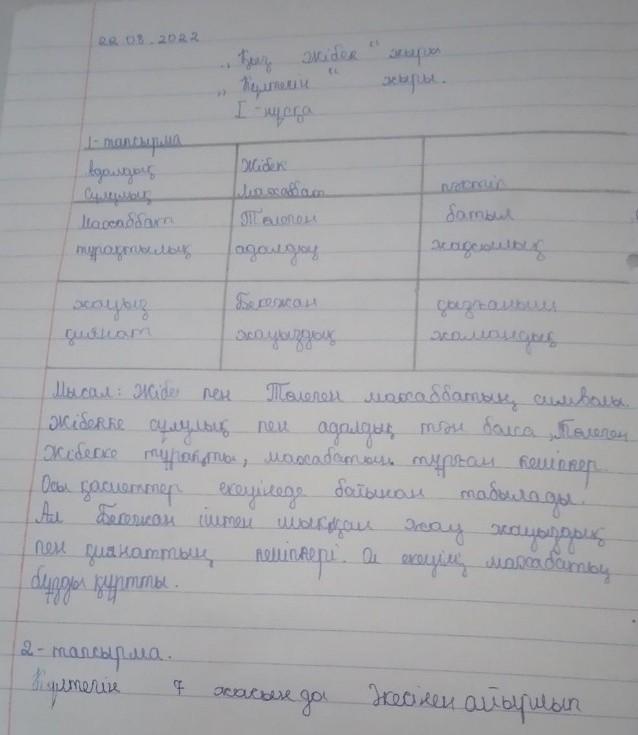 22.08.2022
„Қыз Жібек“ жыры
„Күлтегін“ жыры.
I-нұсқа
1-тапсырма
адалдық Жібек
сұлулық махаббат нәзіктік
махаббат Төлеген батыл
тұрақтылық адалдық жақсылық
жауыз Бекежан қызғаныш
қиянат жауыздық жамандық
Мысал: Жібек пен Төлеген махаббатың символы.
Жібекке сұлулық пен адалдық тән болса, Төлеген
Жібекке тұрақты, махабатын тұрған кейіпкер
Осы қасиеттер екеуінеде батынан табылады.
Ал Бекежан іштен шыққан жау жауыздық
пен қиянаттың кейіпкері. Ол екеуінің махабатың
бұзды құртты.
2-тапсырма.
Күлтегін 7 жасында әкесінен айырылып